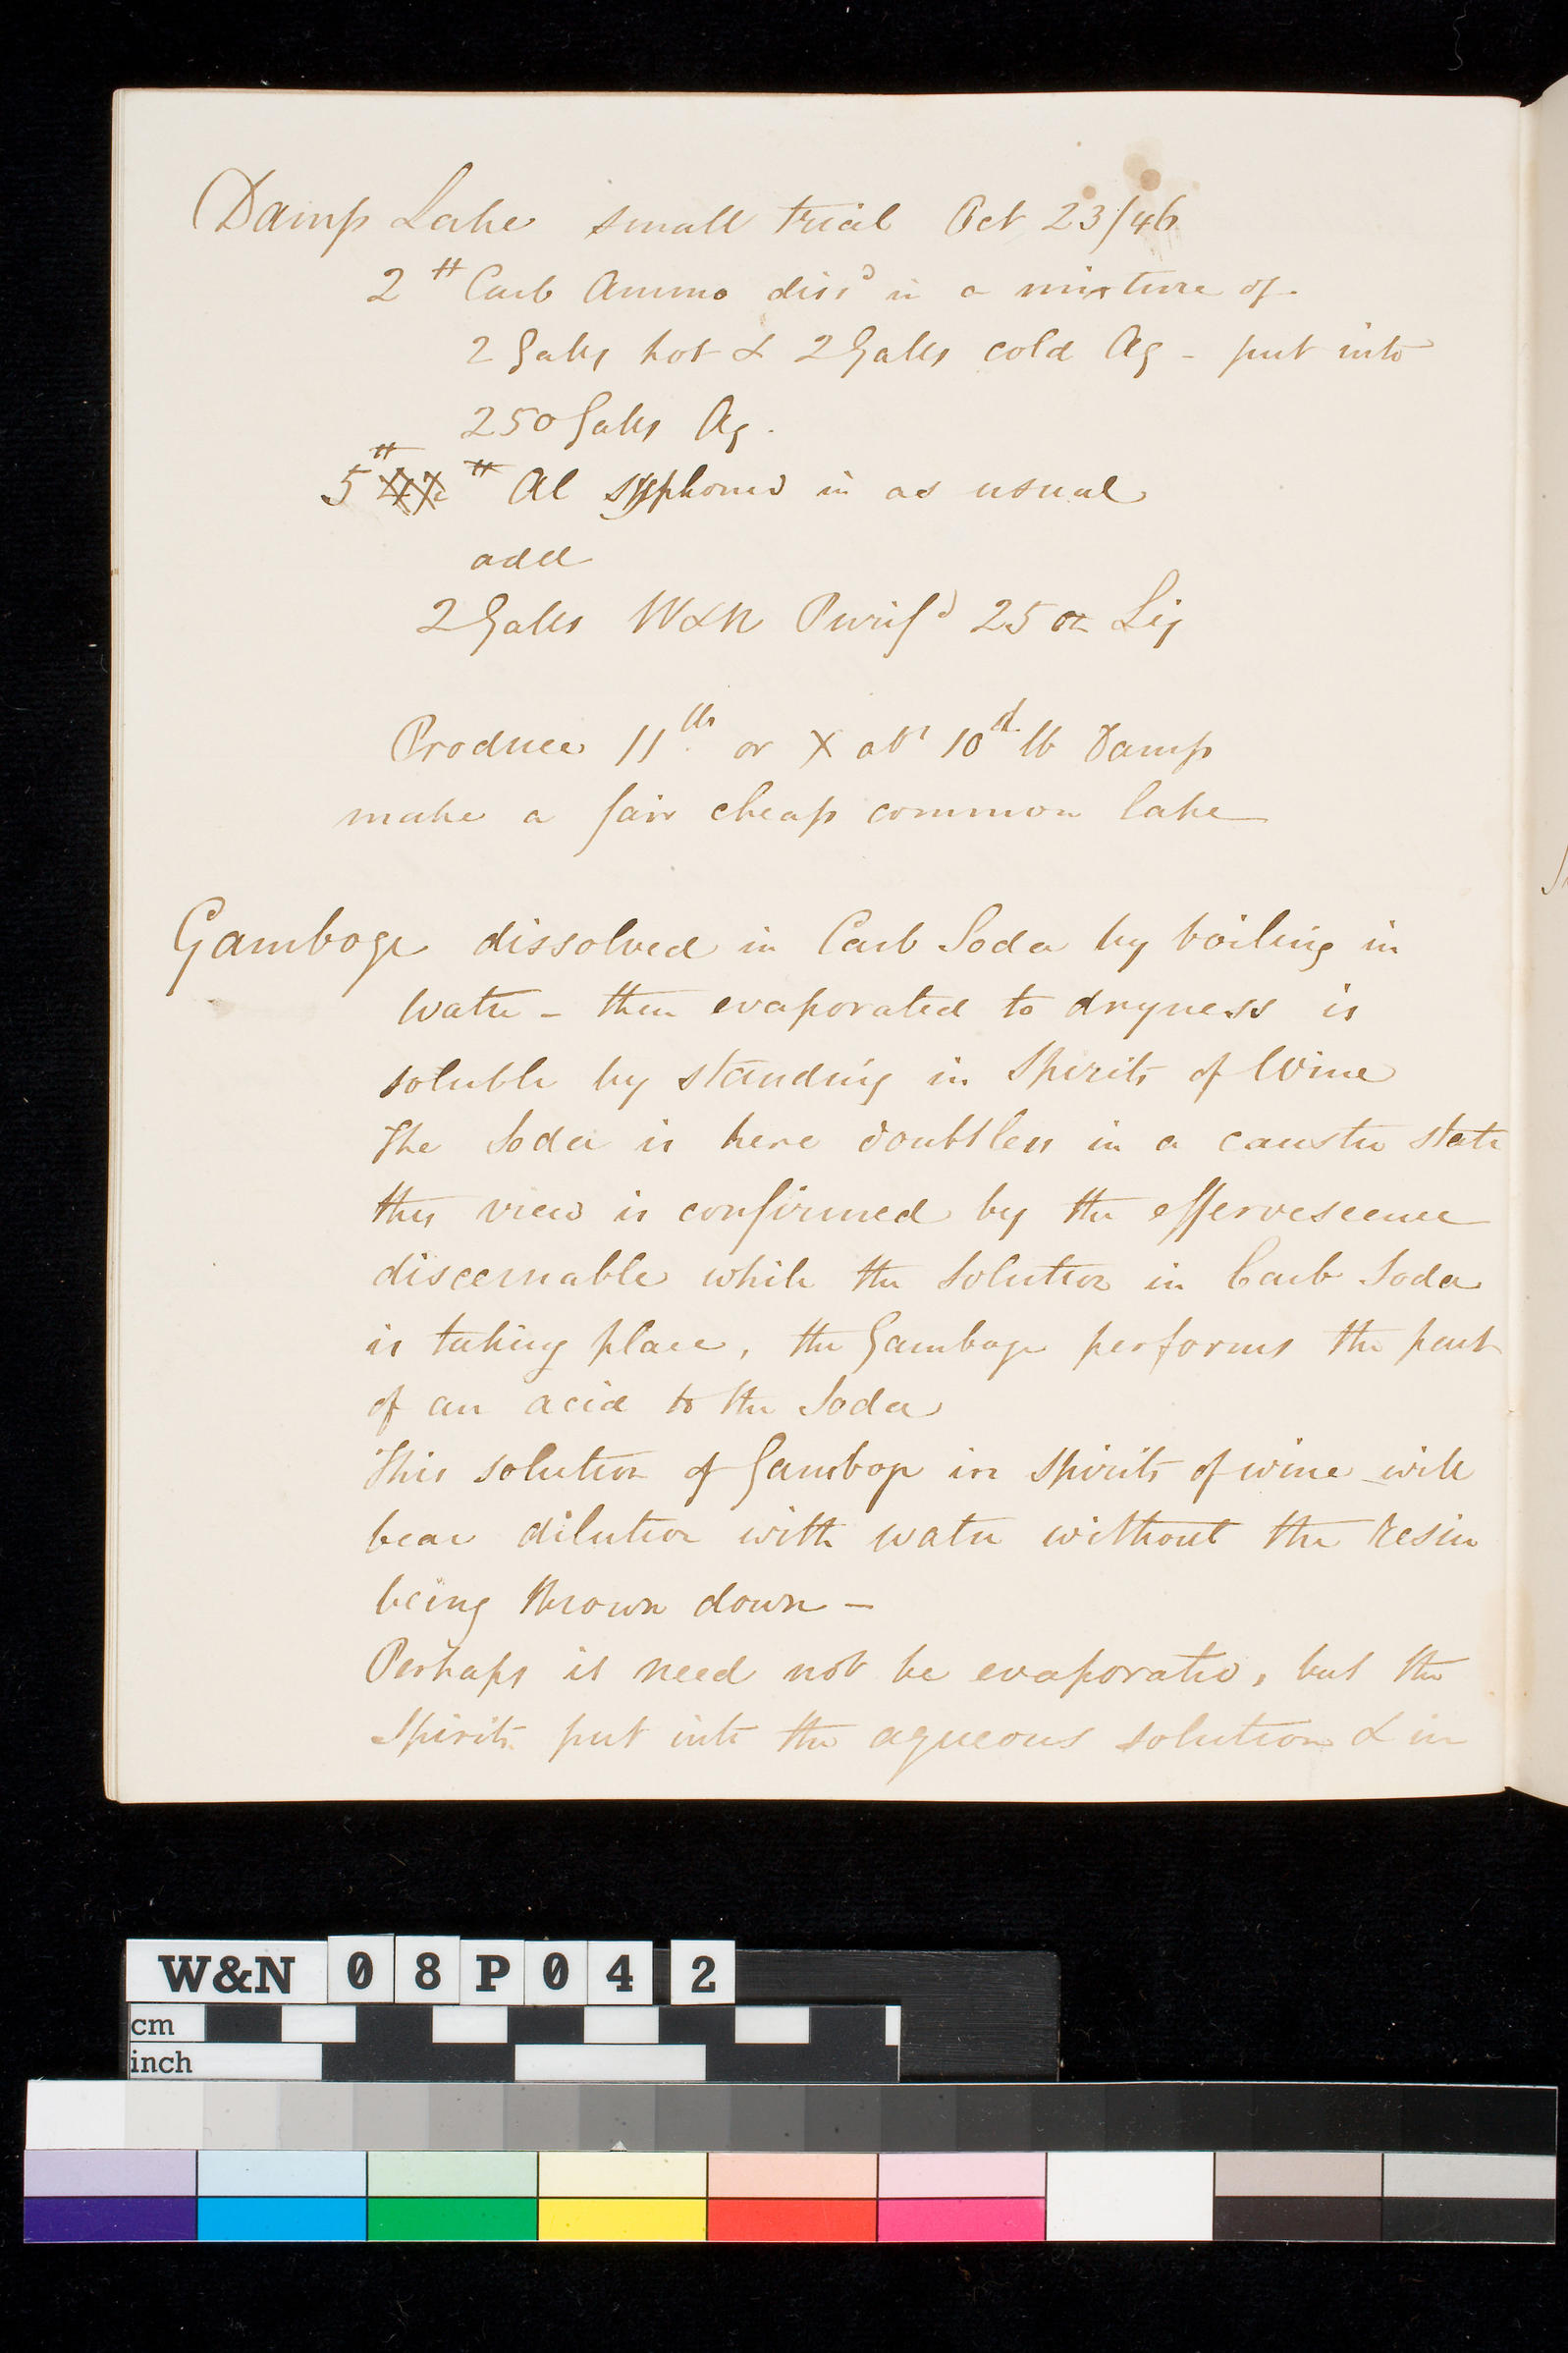 Damp Lake small trial Oct 23/46
2 # Carb Ammo diss^d in a mixture of
2 Galls hot & 2 Galls cold Aq - put into
250 Galls Aq.
5 # # Al syphoned in as usual
add
2 Galls W&N Purif^d 25 oz Liq
Produce 11 lbs or X abt 10^d lb Damp
make a fair cheap common lake
Gamboge dissolved in Carb Soda by boiling in
water - then evaporated to dryness is
soluble by standing in Spirits of Wine
The Soda is here doubtless in a caustic state
this view is confirmed by the effervescence
discernable while the solution in Carb Soda
is taking place, the Gamboge performs the part
of an acid to the Soda
This solution of Gamboge in Spirits of wine will
bear dilution with water without the resin
being thrown down -
Perhaps it need not be evaporated, but the
Spirits put into the aqueous solution & in
W&N 08P042
cm
inch